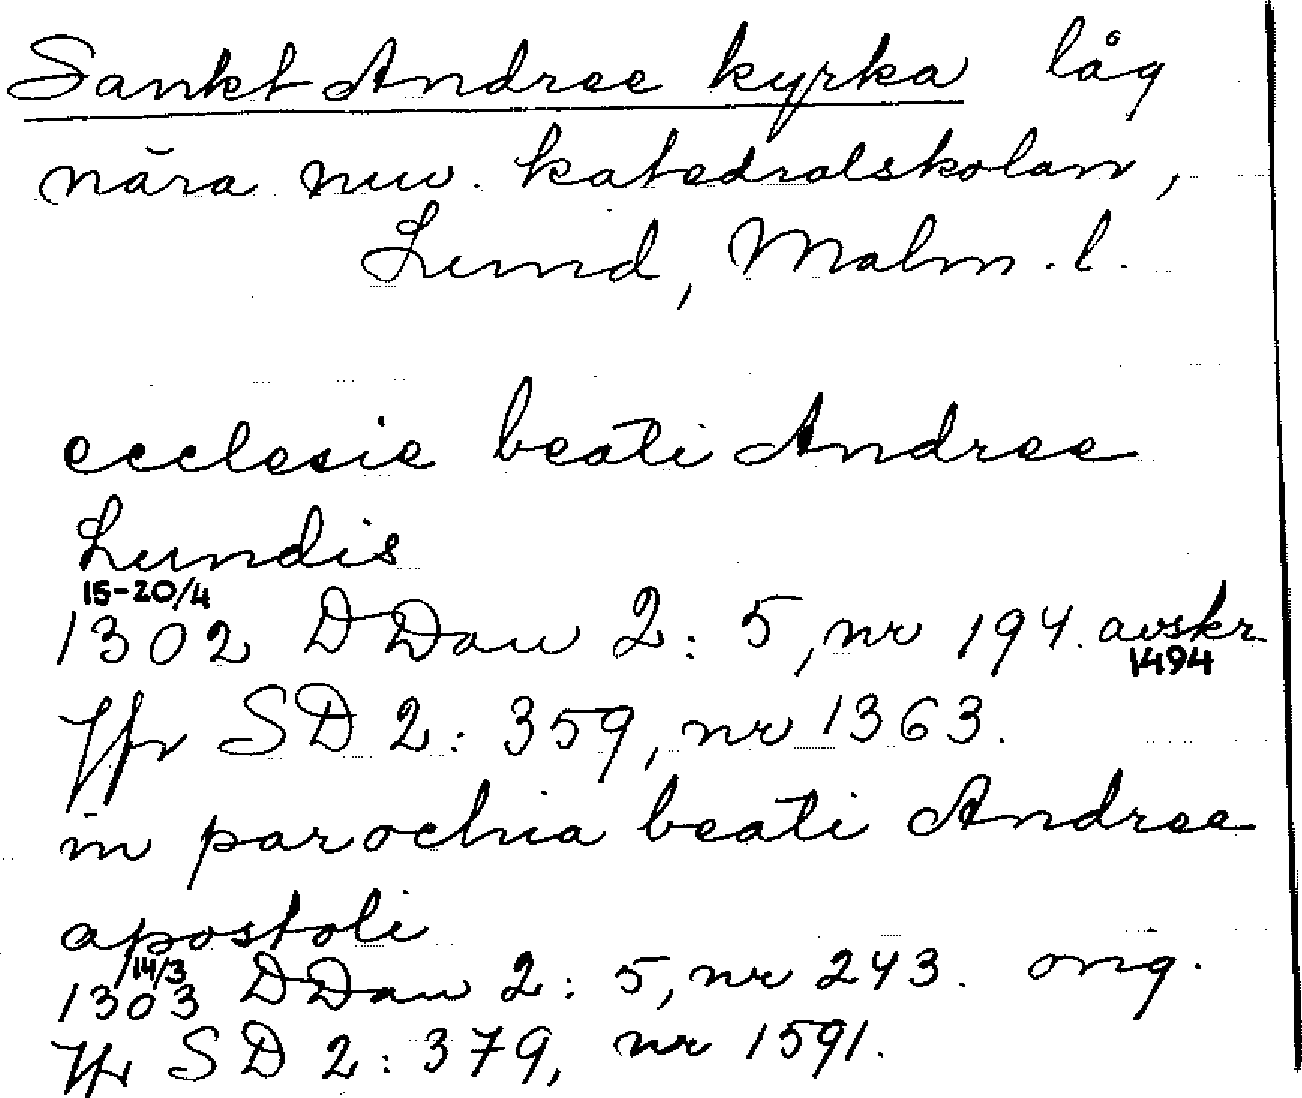 Sankt Andree kyrka låg
nära nuv. katedralskolan,
Lund, Malm. l.
ecclesie beati Andree
Lundis
15-20/4
1302 DDan 2: 5, nr 194. avskr
1494
Jfr SD 2: 359, nr 1363.
in parochia beati Andree
apostoli
14/3
1303 DDan 2: 5, nr 243. orig.
Jfr SD 2: 379, nr 1591.